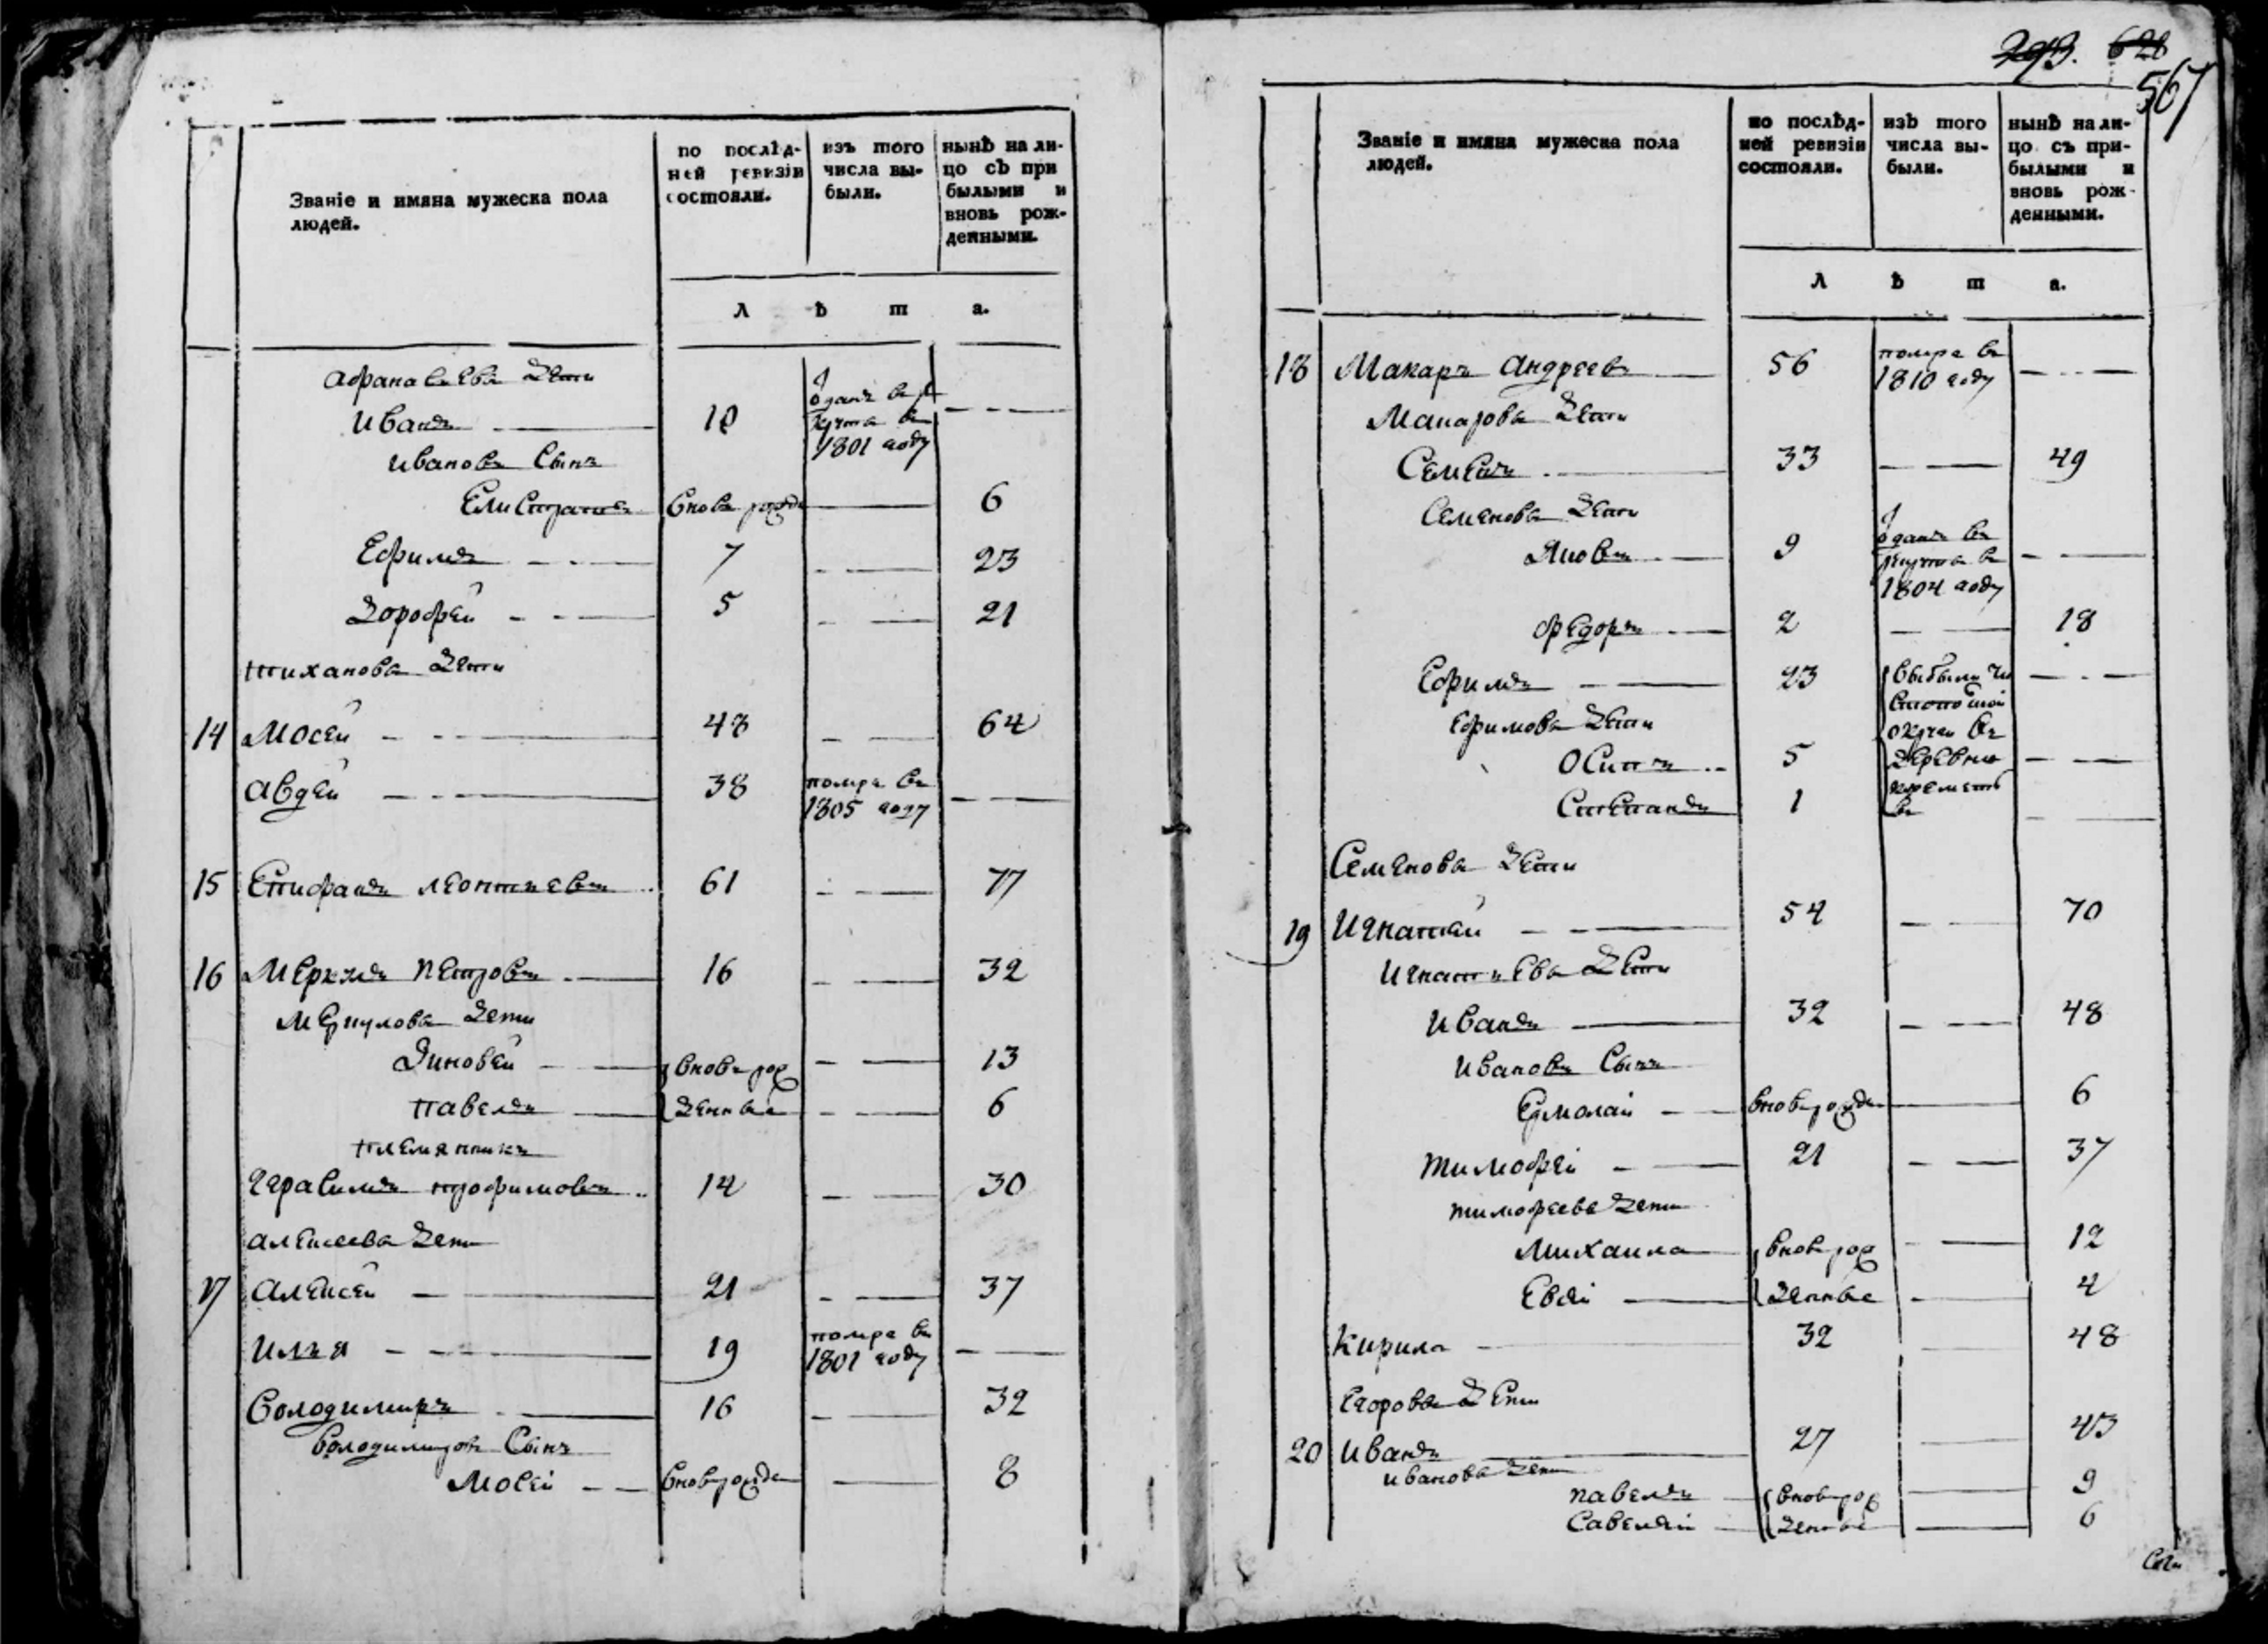 Званіе и имяна мужеска пола людей.
по послѣд-
ней ревизіи
состояли.
изъ того
числа вы-
были.
нынѣ на ли-
цо съ при
былыми и
вновь рож-
денными.
л ѣ т а.
Афанасьева Дети
Иванъ 10
1801 году
Ивановъ Сынъ
Елистратъ вновь рожде 6
Ефимъ 7 23
Дорофей 5 21
Тиханова Дети
14 Мосей 48 64
Авдей 38 помре въ 1805 году
15 Епифанъ Леонтьевъ 61 77
16 Меркулъ Петровъ 16 32
Меркулова Дети
Зиновей вновь рож 13
Павелъ денные 6
племянникъ
Гарасимъ Трофимовъ 14 30
Алексеева Дети
17 Алексей 21 37
Илья 19 помре въ 1801 году
Володимиръ 16 32
Володимировъ Сынъ
Мосеi вновь рожде 8
293. 628
567
Званіе и имяна мужеска пола
людей.
по послѣд-
ней ревизіи
состояли.
изъ того
числа вы-
были.
нынѣ на ли-
цо съ при-
былыми и
вновь рож-
денными.
л ѣ т а.
18 Макаръ Андреевъ 56 помре въ 1810 году
Макарова Дети
Семенъ 33 49
Семенова Дети
Яковъ 9 отданъ въ рекруты въ 1804 году
Федоръ 2 18
Ефимъ 23 выбыли
Ефимова Дети
Осипъ 5 деревню
Степанъ 1
Семенова Дети
19 Игнатей 54 70
Игнатьева Дети
Иванъ 32 48
Ивановъ Сынъ
Ермолаi вновь рожде 6
Тимофеi 21 37
Тимофеева Дети
Михаила вновь рож 12
Евсеi денные 4
Кирила 32 48
Егорова Дети
20 Иванъ 27 43
Иванова Дети
Павелъ вновь рож 9
Савелеi денные 6